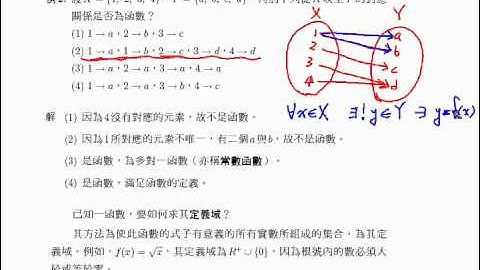 關係是否為函數？
(1) 1→a，2→b，3→c
(2) 1→a，1→b，2→c，3→d，4→d
(3) 1→a，2→a，3→a，4→a
X
Y
1
2
3
4
a
b
c
d
∀x∈X ∃!y∈Y ∋ y=f(x)
解 (1) 因為4沒有對應的元素，故不是函數。
(2) 因為1所對應的元素不唯一，有二個a與b，故不是函數。
(3) 是函數，為多對一函數（亦稱常數函數）。
(4) 是函數，滿足函數的定義。
已知一函數，要如何求其定義域？
其方法為使此函數的式子有意義的所有實數所組成的集合，為其定
義域。例如，f(x)=√x，其定義域為R⁺∪{0}，因為根號內的數必須大
於或等於零。